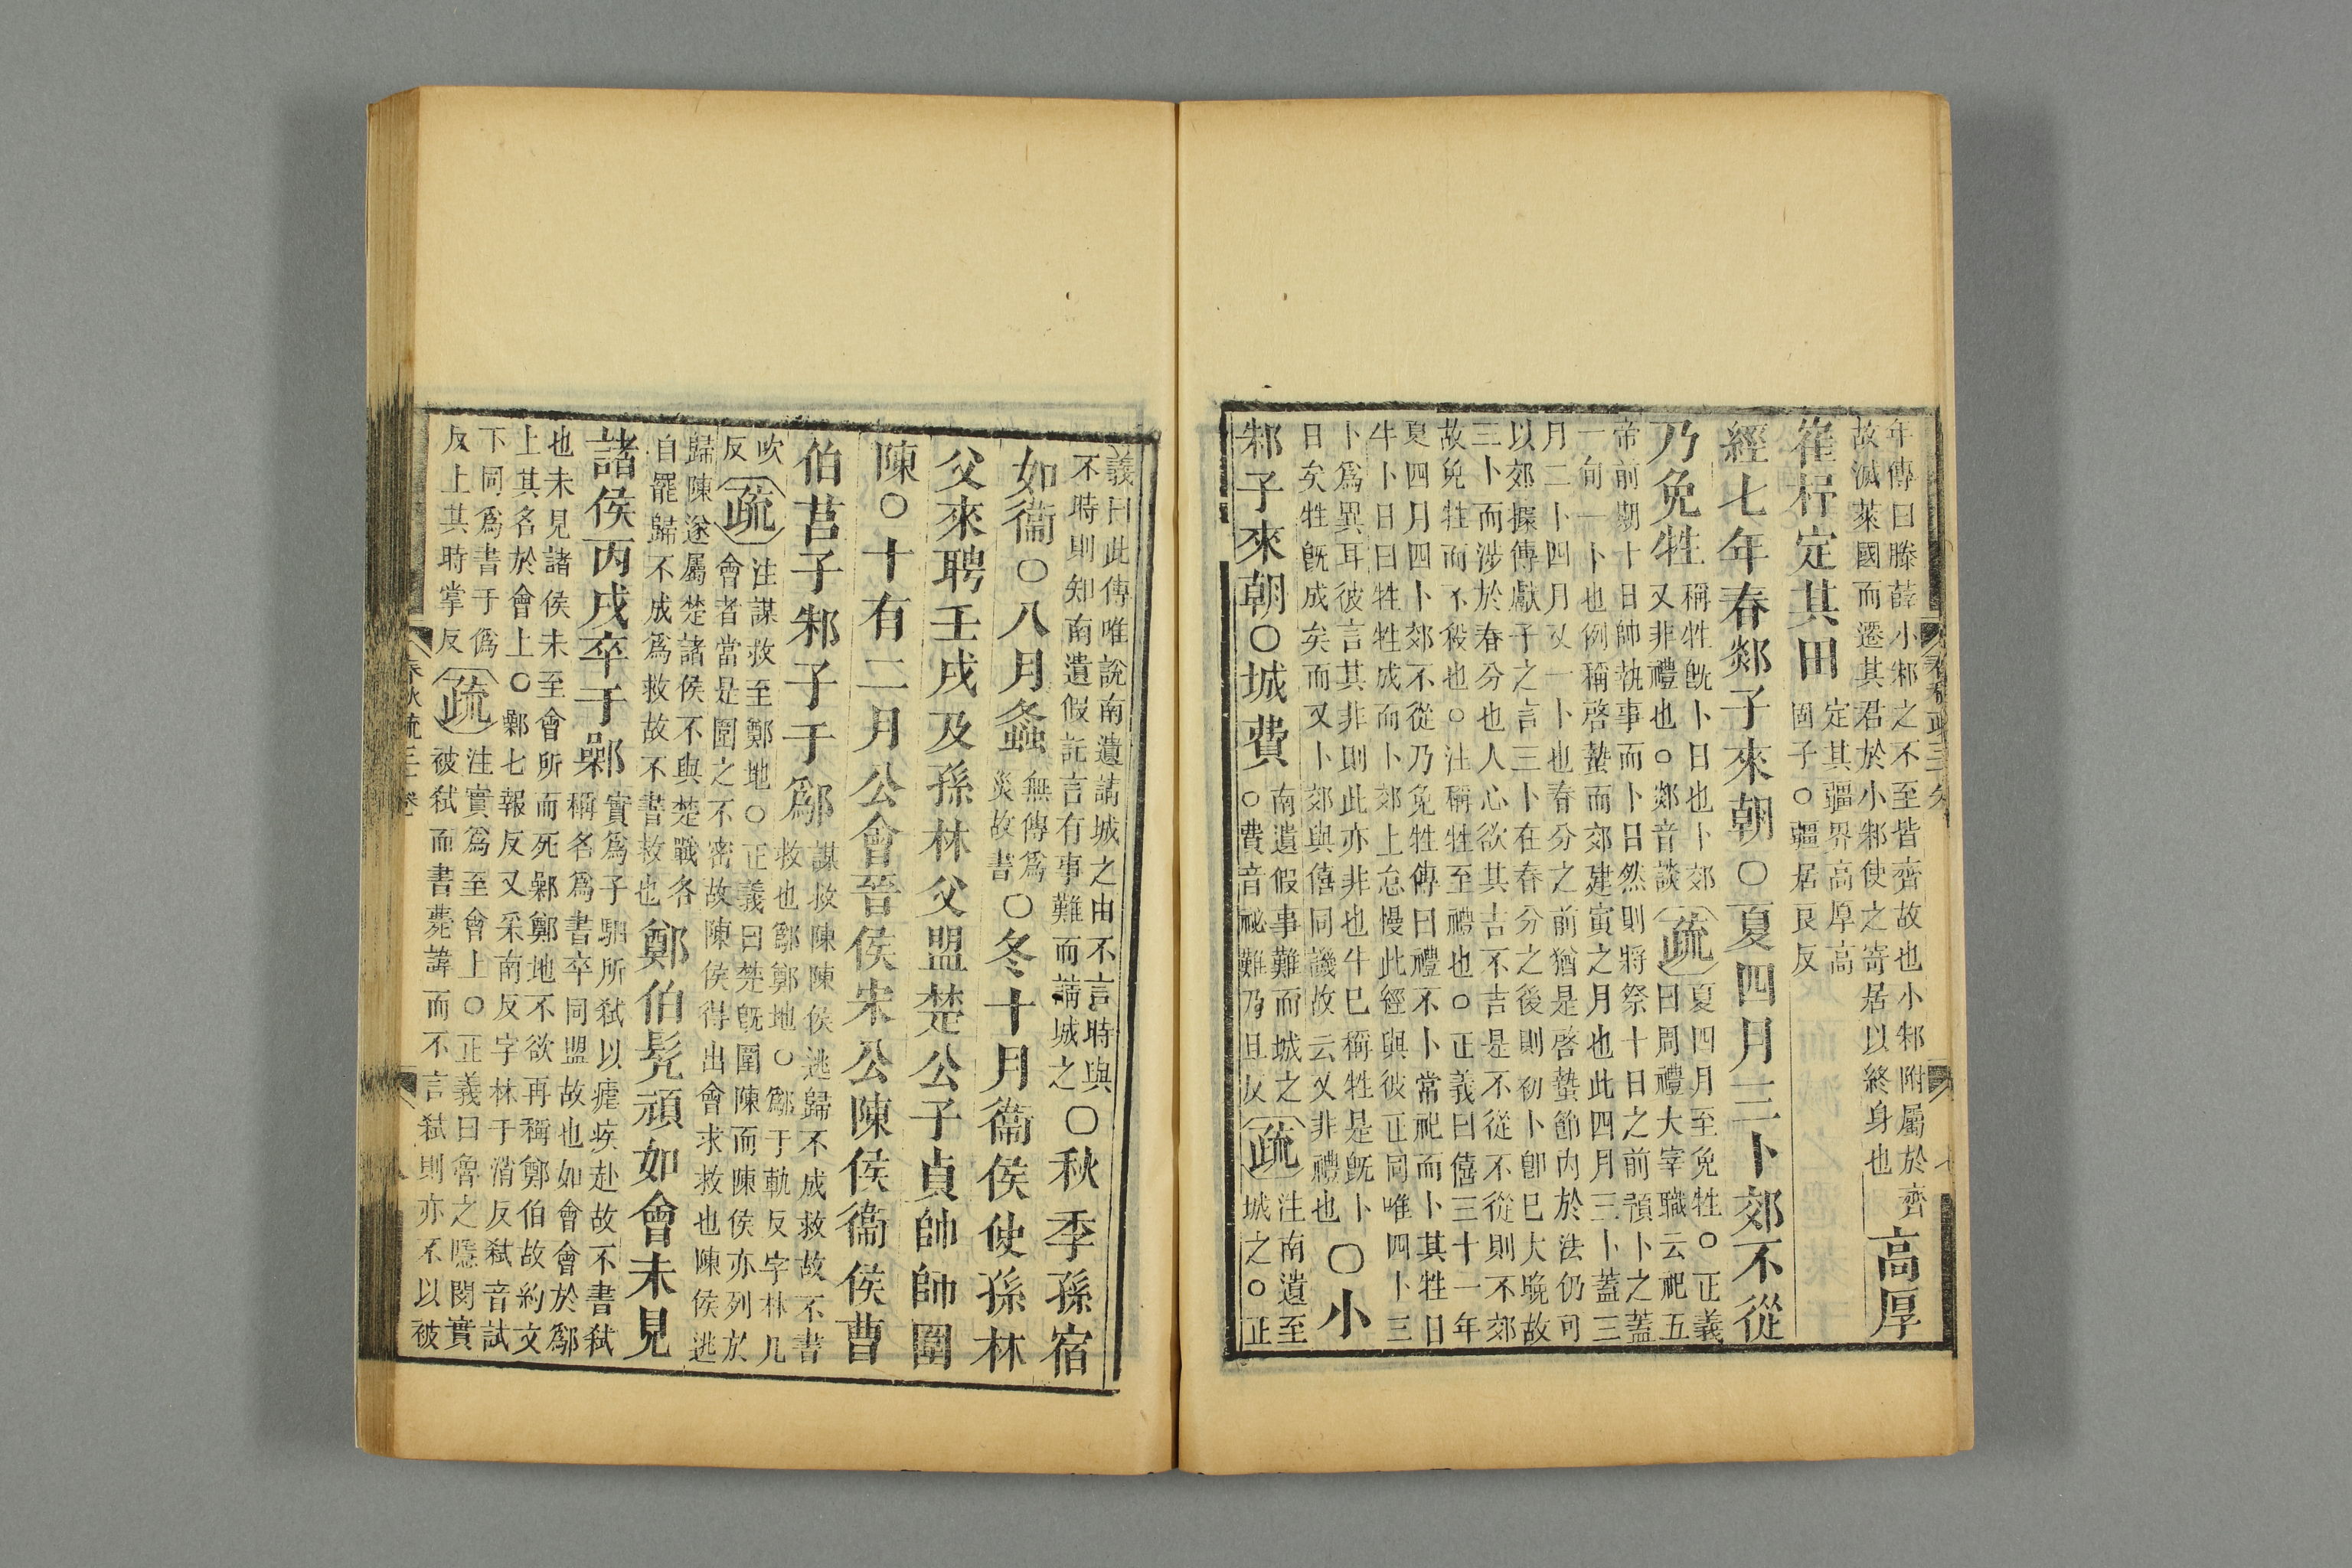 年傳曰滕薛小邾之不至皆齊故也小邾附屬於齊
故滅萊國而遷其君於小邾使之寄居以終身也
高厚
崔杼定其田
定其疆界高厚高
固子○疆居良反
經七年春郯子來朝○夏四月三卜郊不從
乃免牲
稱牲旣卜日也卜郊
又非禮也○郯音談
疏
夏四月至免牲○正義
曰周禮大宰職云祀五
帝前期十日帥執事而卜日然則將祭十日之前預卜之蓋
一旬一卜也例稱啓蟄而郊建寅之月也此四月三卜蓋三
月二卜四月又一卜也春分之前猶是啓蟄節內於法仍可
以郊據傳獻子之言三卜在春分之後則初卜卽已大晚故
三卜而涉於春分也人心欲其吉不吉是不從不從則不郊
故免牲而不殺也○注稱牲至禮也○正義曰僖三十一年
夏四月四卜郊不從乃免牲傳曰禮不卜常祀而卜其牲日
牛卜日曰牲牲成而卜郊上怠慢此經與彼正同唯四卜三
卜爲異耳彼言其非則此亦非也牛已稱牲是旣卜
日矣牲旣成矣而又卜郊與僖同譏故云又非禮也
○小
邾子來朝○城費
南遺假事難而城之
○費音祕難乃旦反
疏
注南遺至
城之○正
義曰此傳唯說南遺請城之由不言時與
不時則知南遺假託言有事難而請城之
○秋季孫宿
如衞○八月螽
無傳爲
災故書
○冬十月衞侯使孫林
父來聘壬戌及孫林父盟楚公子貞帥師圍
陳○十有二月公會晉侯宋公陳侯衞侯曹
伯莒子邾子于鄬
謀救陳陳侯逃歸不成救故不書
救也鄬鄭地○鄬于軌反字林几
吹
反
疏
注謀救至鄭地○正義曰楚旣圍陳而陳侯亦列於
會者當是圍之不密故陳侯得出會求救也陳侯逃
歸陳遂屬楚諸侯不與楚戰各
自罷歸不成爲救故不書救也
鄭伯髡頑如會未見
諸侯丙戌卒于鄵
實爲子駟所弒以瘧疾赴故不書弒
稱名爲書卒同盟故也如會會於鄬
也未見諸侯未至會所而死鄵鄭地不欲再稱鄭伯故約文
上其名於會上○鄵七報反又采南反字林于消反弒音試
下同爲書于僞
反上其時掌反
疏
注實爲至會上○正義曰魯之隱閔實
被弒而書薨諱而不言弒則亦不以被